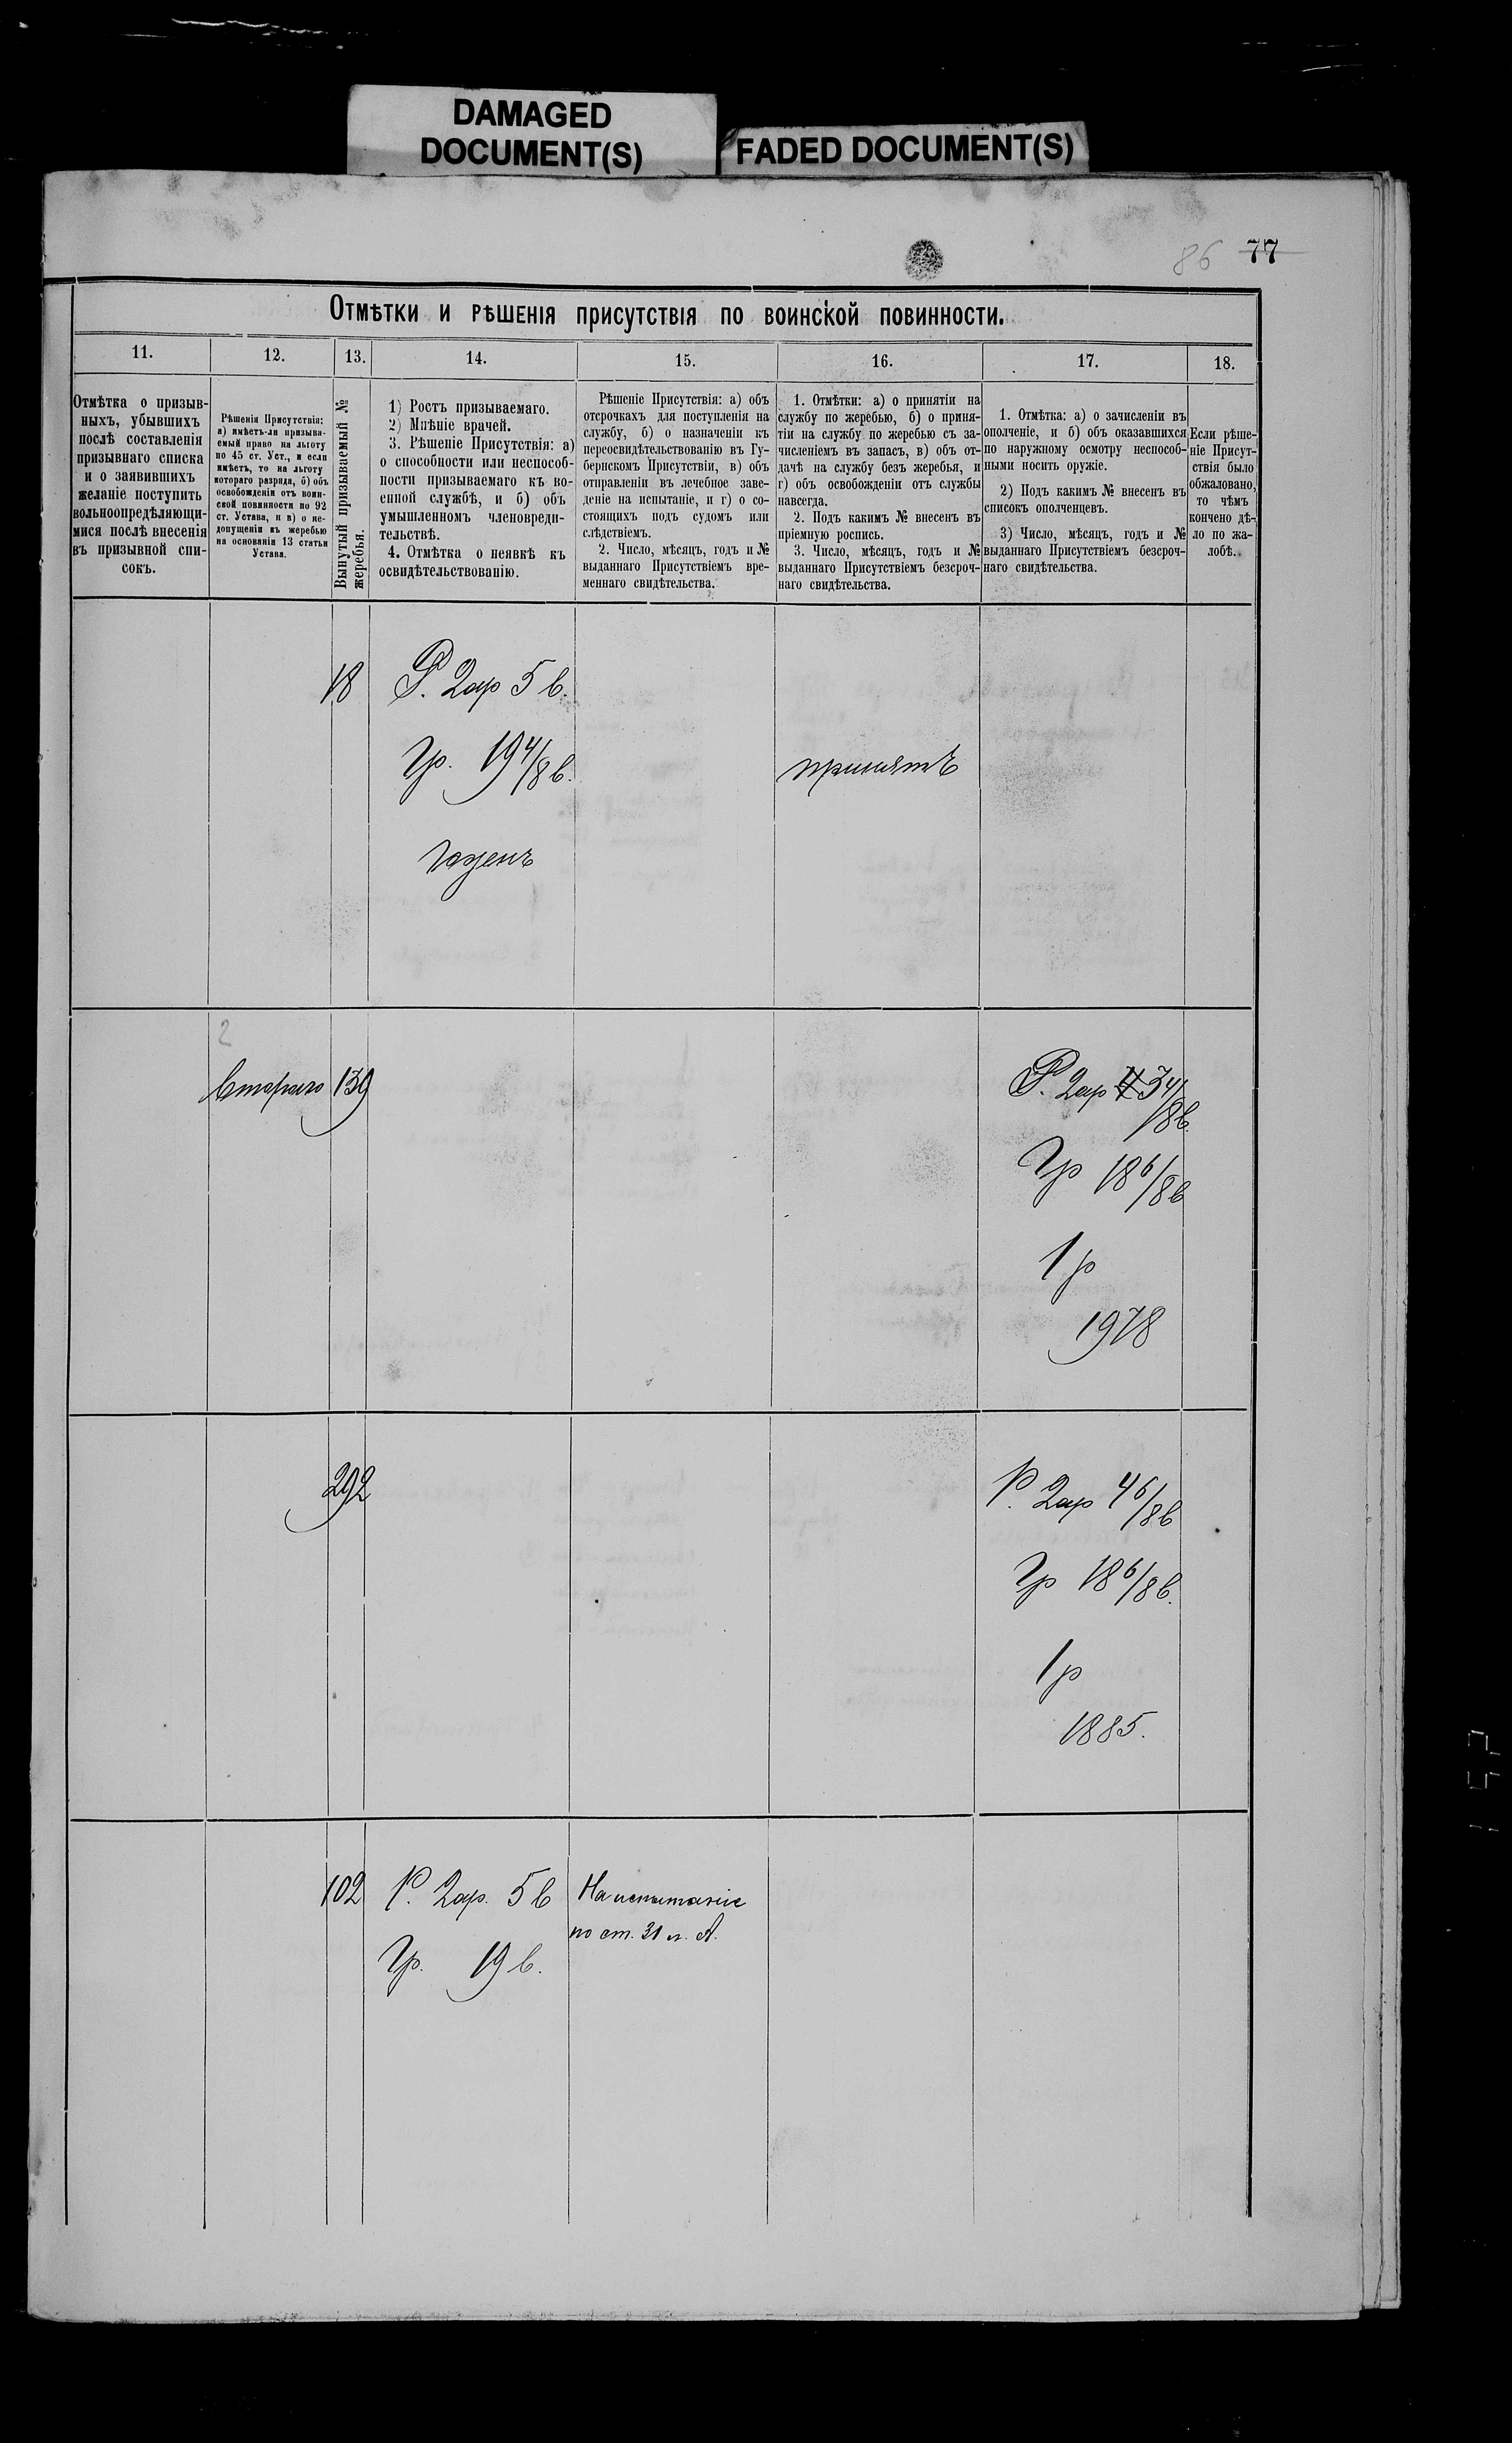 DAMAGED
DOCUMENT(S)
FADED DOCUMENT(S)
86 77
Отмѣтки и рѣшенія присутствія по воинской повинности.
11.
12.
13.
14.
15.
16.
17.
18.
Отмѣтка о призыв-
ныхъ, убывшихъ
послѣ составленія
призывнаго списка
и о заявившихъ
желаніе поступить
вольноопредѣляющи-
мися послѣ внесенія
въ призывной спи-
сокъ.
Рѣшенія Присутствія:
а) имѣетъ-ли призыва-
емый право на льготу
по 45 ст. Уст., и если
имѣетъ, то на льготу
котораго разряда, б) объ
освобожденіи отъ воин-
ской повинности по 92
ст. Устава, и в) о не-
допущеніи къ жеребью
на основаніи 13 статьи
Устава.
Вынутый призываемый №
жеребья.
1) Ростъ призываемаго.
2) Мнѣніе врачей.
3. Рѣшеніе Присутствія: а)
о способности или неспособ-
ности призываемаго къ во-
енной службѣ, и б) объ
умышленномъ членовреди-
тельствѣ.
4. Отмѣтка о неявкѣ къ
освидѣтельствованію.
Рѣшеніе Присутствія: а) объ
отсрочкахъ для поступленія на
службу, б) о назначеніи къ
переосвидѣтельствованію въ Гу-
бернскомъ Присутствіи, в) объ
отправленіи въ лечебное заве-
деніе на испытаніе, и г) о со-
стоящихъ подъ судомъ или
слѣдствіемъ.
2. Число, мѣсяцъ, годъ и №
выданнаго Присутствіемъ вре-
меннаго свидѣтельства.
1. Отмѣтки: а) о принятіи на
службу по жеребью, б) о приня-
тіи на службу по жеребью съ за-
численіемъ въ запасъ, в) объ от-
дачѣ на службу безъ жеребья, и
г) объ освобожденіи отъ службы
навсегда.
2. Подъ какимъ № внесенъ въ
пріемную роспись.
3. Число, мѣсяцъ, годъ и №
выданнаго Присутствіемъ безсроч-
наго свидѣтельства.
1. Отмѣтка: а) о зачисленіи въ
ополченіе, и б) объ оказавшихся
по наружному осмотру неспособ-
ными носить оружіе.
2) Подъ какимъ № внесенъ въ
списокъ ополченцевъ.
3) Число, мѣсяцъ, годъ и №
выданнаго Присутствіемъ безсроч-
наго свидѣтельства.
Если рѣше-
ніе Присут-
ствія было
обжаловано,
то чѣмъ
кончено дѣ-
ло по жа-
лобѣ.
18
Р. 2ар 5 в.
Гр. 19 4/8 в.
годенъ
принятъ
2
Втораго
139
Р. 2ар 3 4/8 в.
Гр 18 6/8 в
1 р
1978
292
Р. 2ар 4 6/8 в
Гр 18 6/8 в.
1 р
1885.
102
Р. 2ар. 5 в
Гр. 19 в.
На испытаніе
по ст. 31 л. А.